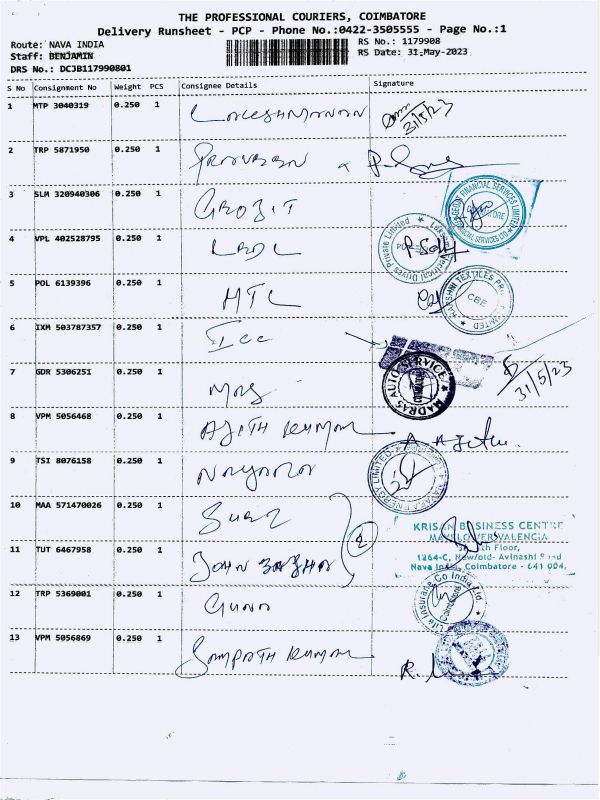 THE PROFESSIONAL COURIERS, COIMBATORE
Delivery Runsheet - PCP - Phone No.:0422-3505555 - Page No.:1
Route: NAVA INDIA RS No.: 1179908
Staff: BENJAMIN RS Date: 31-May-2023
DRS No.: DCJB117990801
S No Consignment No Weight PCS Consignee Details Signature
1 MTP 3040319 0.250 1
31/5/23
2 TRP 5871950 0.250 1
3 SLM 320940306 0.250 1
FINANCIAL SERVICES LIMITED
4 VPL 402528795 0.250 1
Electrical Drives Private Limited
5 POL 6139396 0.250 1 MTC
TEXTILES
CBE
6 IXM 503787357 0.250 1 Icc
7 GDR 5306251 0.250 1 Mas
MADRAS AUTO SERVICE
31/5/23
8 VPM 5056468 0.250 1 AJITH KUMAR
9 TSI 8076158 0.250 1 Nayara
NAYARA ENERGY LIMITED
10 MAA 571470026 0.250 1
KRISAN BUSINESS CENTRE
MAYFLOWER VALENCIA
Floor,
11 TUT 6467958 0.250 1 JOHN
1264-C, New/old- Avinashi Road
Nava India, Coimbatore - 641 004.
12 TRP 5369001 0.250 1 Guna
Life Insurance Co India Ltd.
13 VPM 5056869 0.250 1 Sampath Kumar